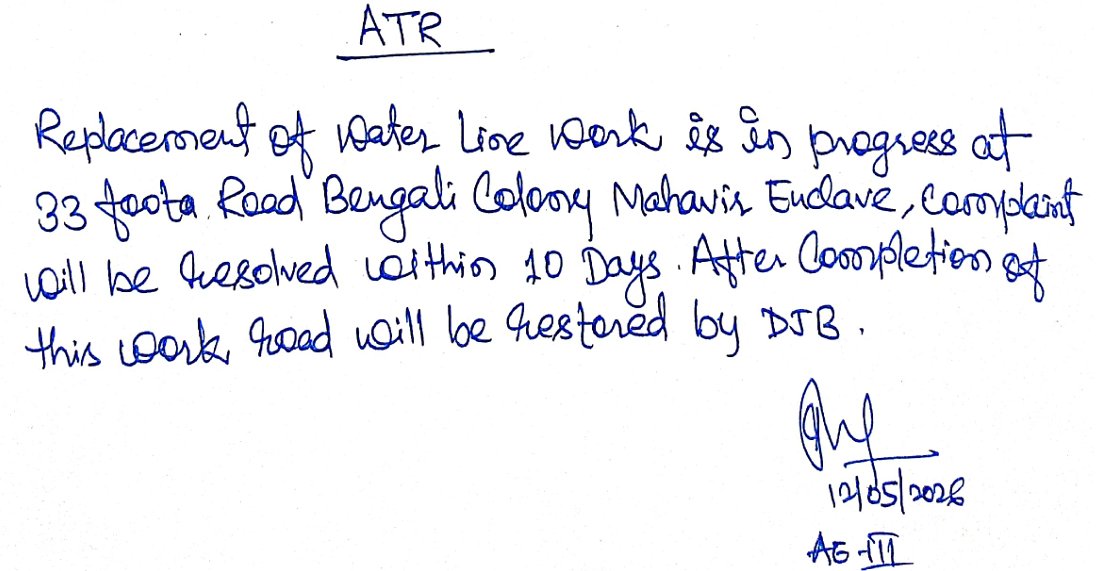 ATR
Replacement of Water Line Work is in progress at
33 foota Road Bengali Colony Mahavir Enclave, complaint
will be resolved within 10 Days. After Completion of
this work road will be restored by DJB.
12/05/2026
AE-III